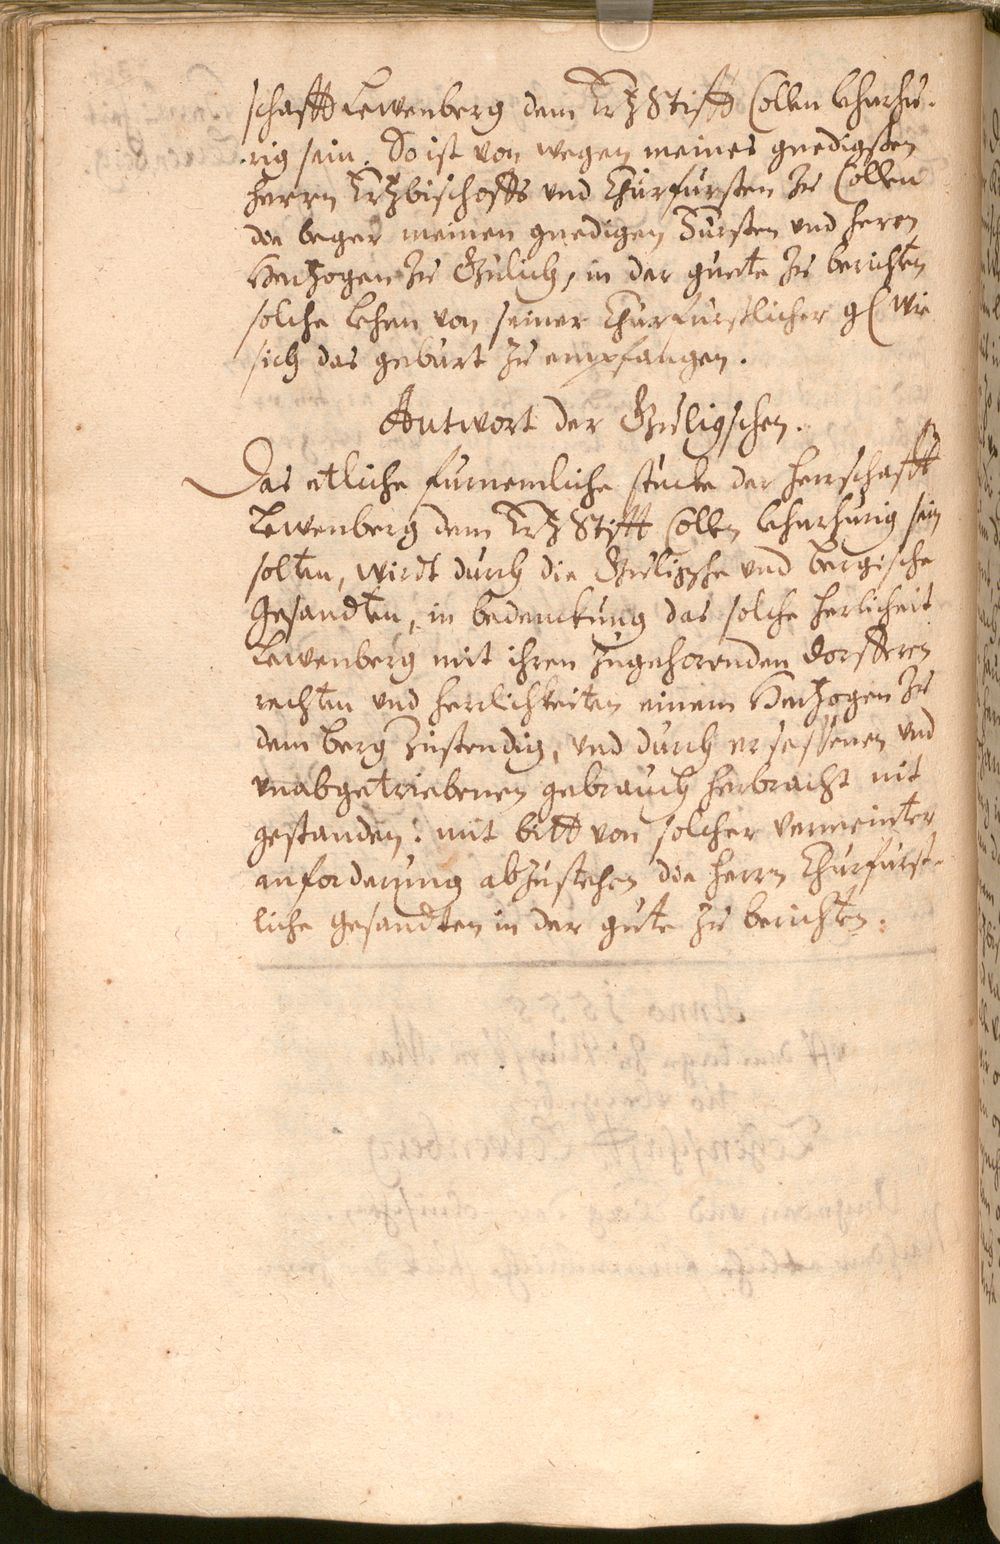 schafft Lewenberg dem Ertz Stifft Collen lehurhu-
rig sein. So ist von wegen meines gnedigsten
herrn Ertzbischoffs und Churfursten zu Collen
die beger meinen gnedigen Fursten und hern
Hertzogen zu Gulich, in der guete zu berichten
solche lehen von seiner Churfurstlicher g( wie
sich das geburt zu empfangen.
Antwort der Guligschen.
Das etliche furnemliche stucke der herrschafft
Lewenberg dem Ertz Stifft Collen lehurhurig sein
solten, wirdt durch die Guligsche und Bergische
Gesandten, in bedenckung das solche herlicheit
Lewenberg mit ihren zugehorenden dorfferen
rechten und herrlichkeiten einem Hertzogen zu
dem Berg zustendig, und durch ersessenen und
unabgetriebenen gebrauch herbracht nit
gestanden: mit bitt von solcher vermeinter
anforderung abzustehen die herrn Churfurst-
liche Gesandten in der gute zu berichten: